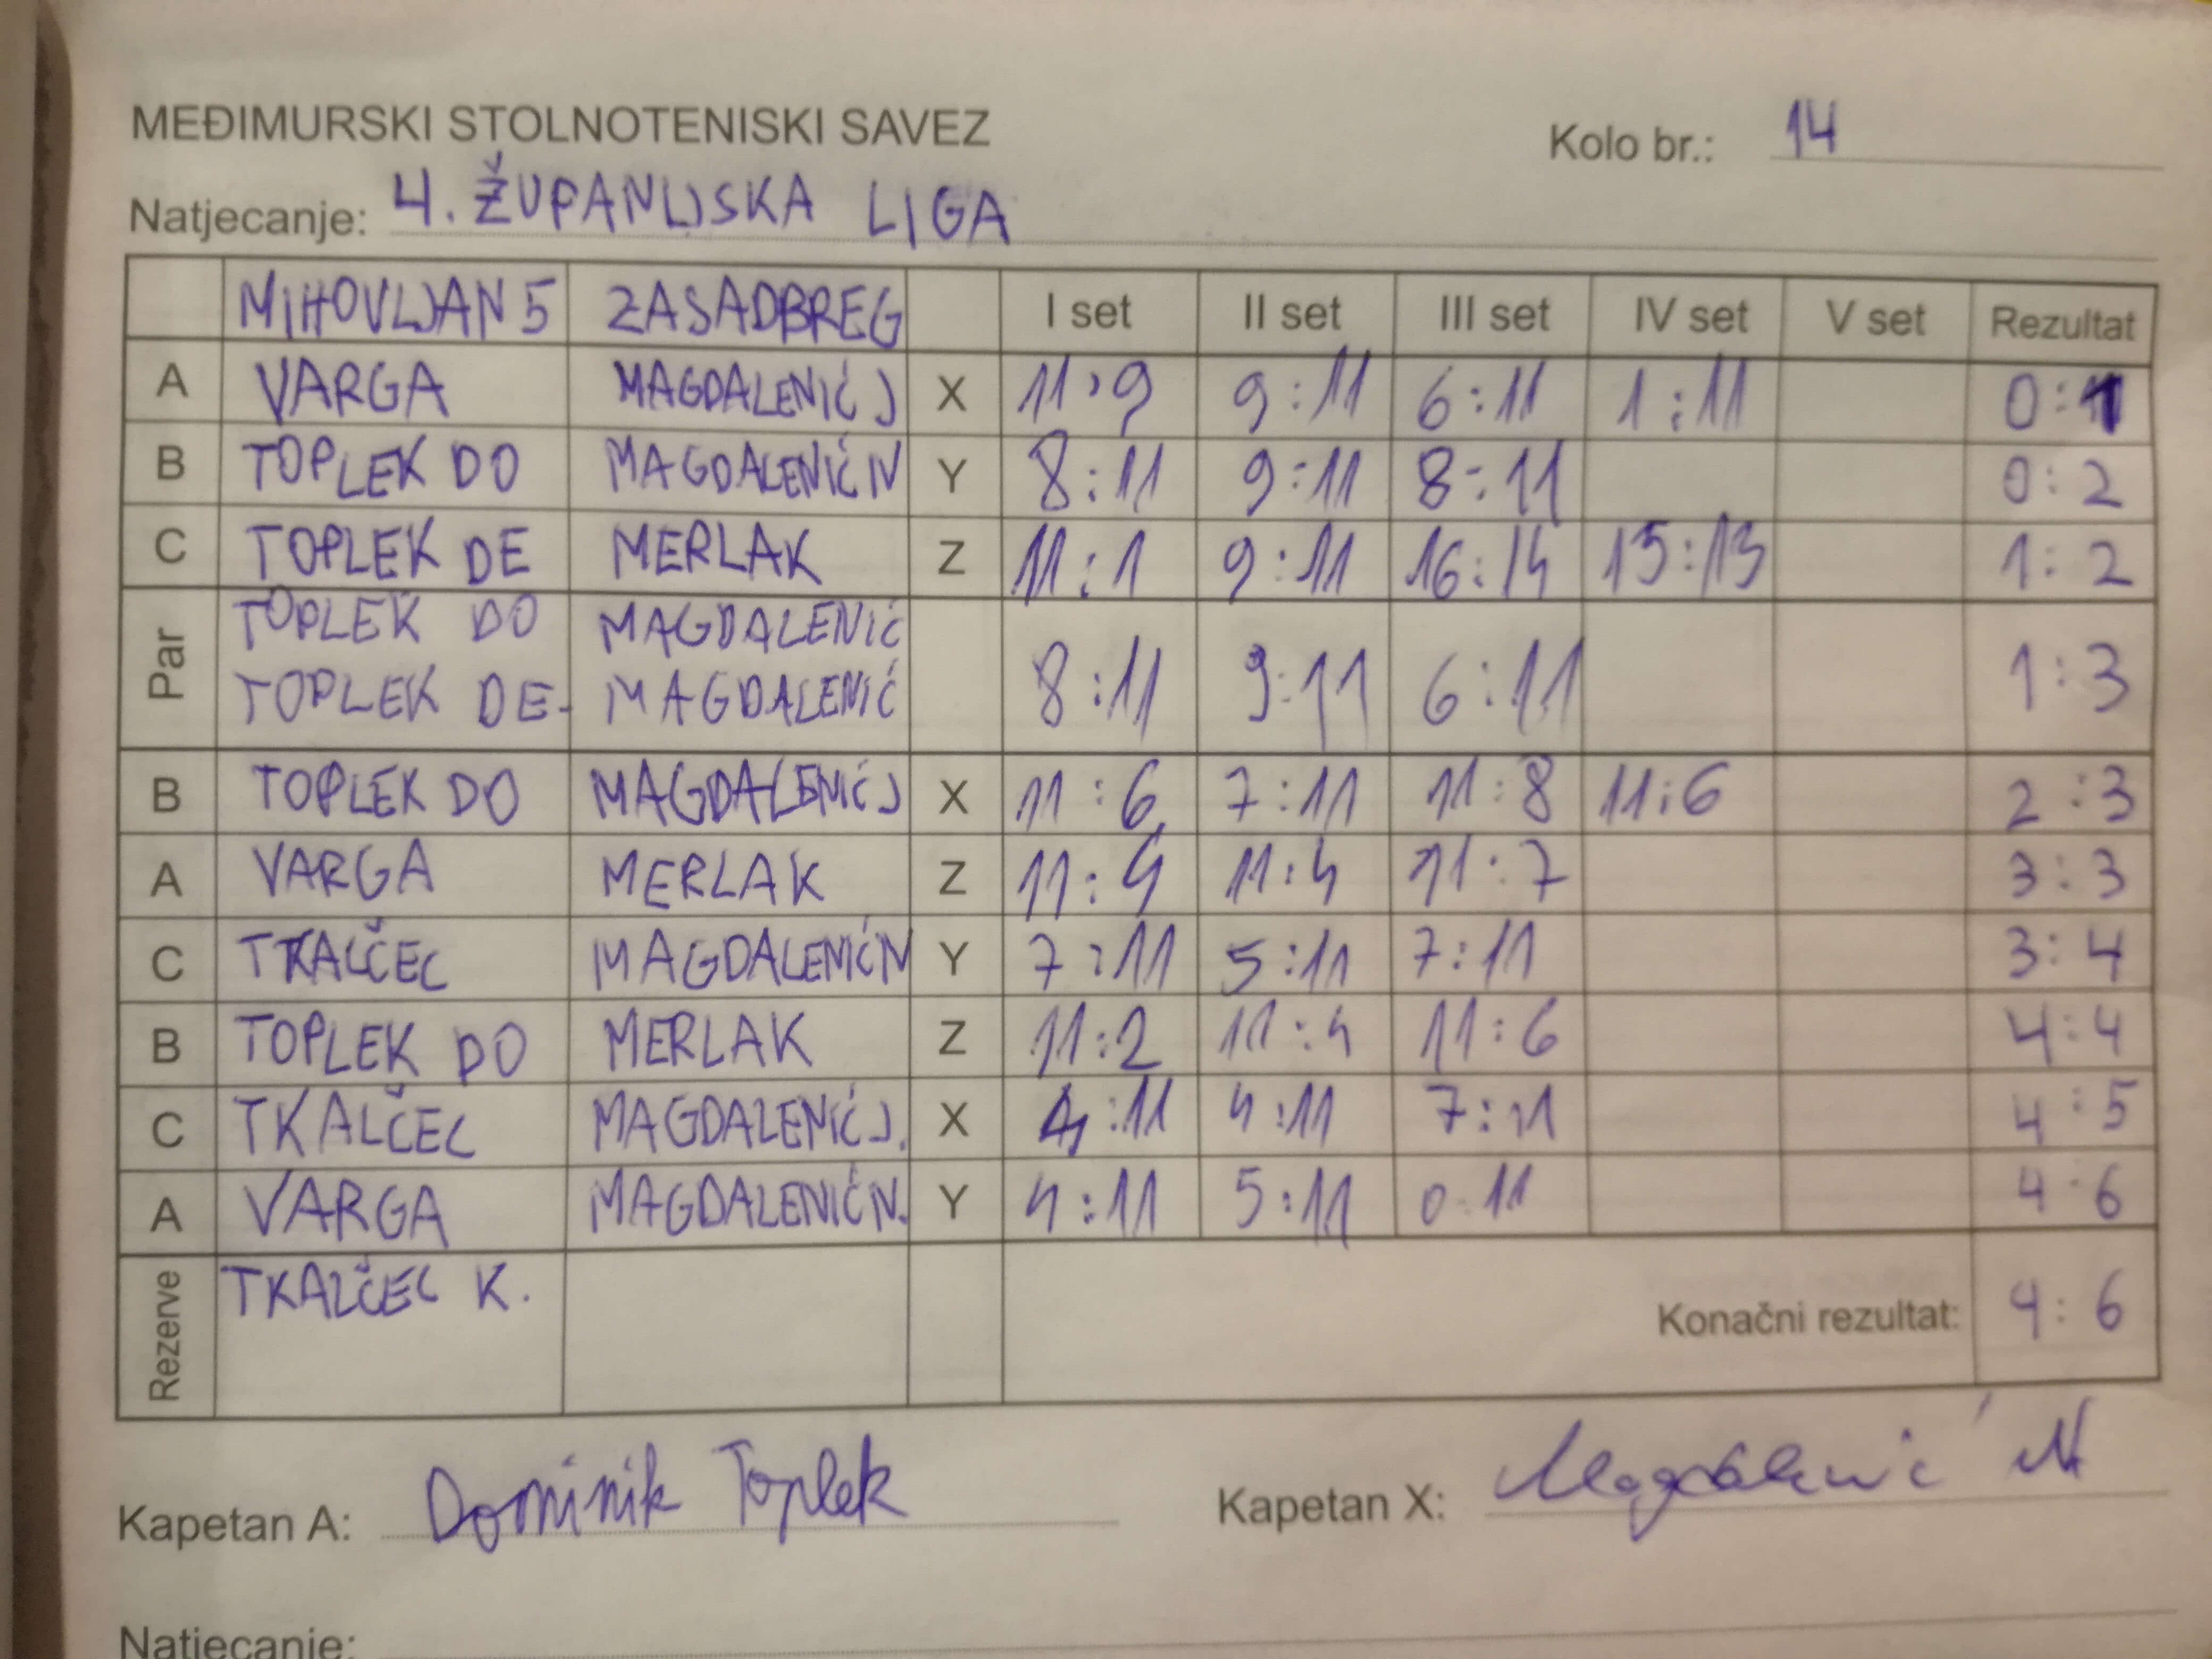 MEĐIMURSKI STOLNOTENISKI SAVEZ
Kolo br.: 14
Natjecanje: 4. ŽUPANIJSKA LIGA
MIHOVLJAN 5 ZASADBREG I set II set III set IV set V set Rezultat
A VARGA MAGDALENIĆ J X 11:9 9:11 6:11 1:11 0:1
B TOPLEK DO MAGDALENIĆ N Y 8:11 9:11 8:11 0:2
C TOPLEK DE MERLAK Z 11:1 9:11 16:14 15:13 1:2
Par TOPLEK DO MAGDALENIĆ
TOPLEK DE- MAGDALENIĆ 8:11 9:11 6:11 1:3
B TOPLEK DO MAGDALENIĆ J X 11:6 7:11 11:8 11:6 2:3
A VARGA MERLAK Z 11:9 11:4 11:7 3:3
C TKALČEC MAGDALENIĆ N Y 7:11 5:11 7:11 3:4
B TOPLEK DO MERLAK Z 11:2 11:4 11:6 4:4
C TKALČEC MAGDALENIĆ J. X 4:11 4:11 7:11 4:5
A VARGA MAGDALENIĆ N. Y 4:11 5:11 0:11 4:6
Rezerve TKALČEC K. Konačni rezultat: 4:6
Kapetan A: Dominik Toplek Kapetan X: Magdalenić N
Natjecanje: